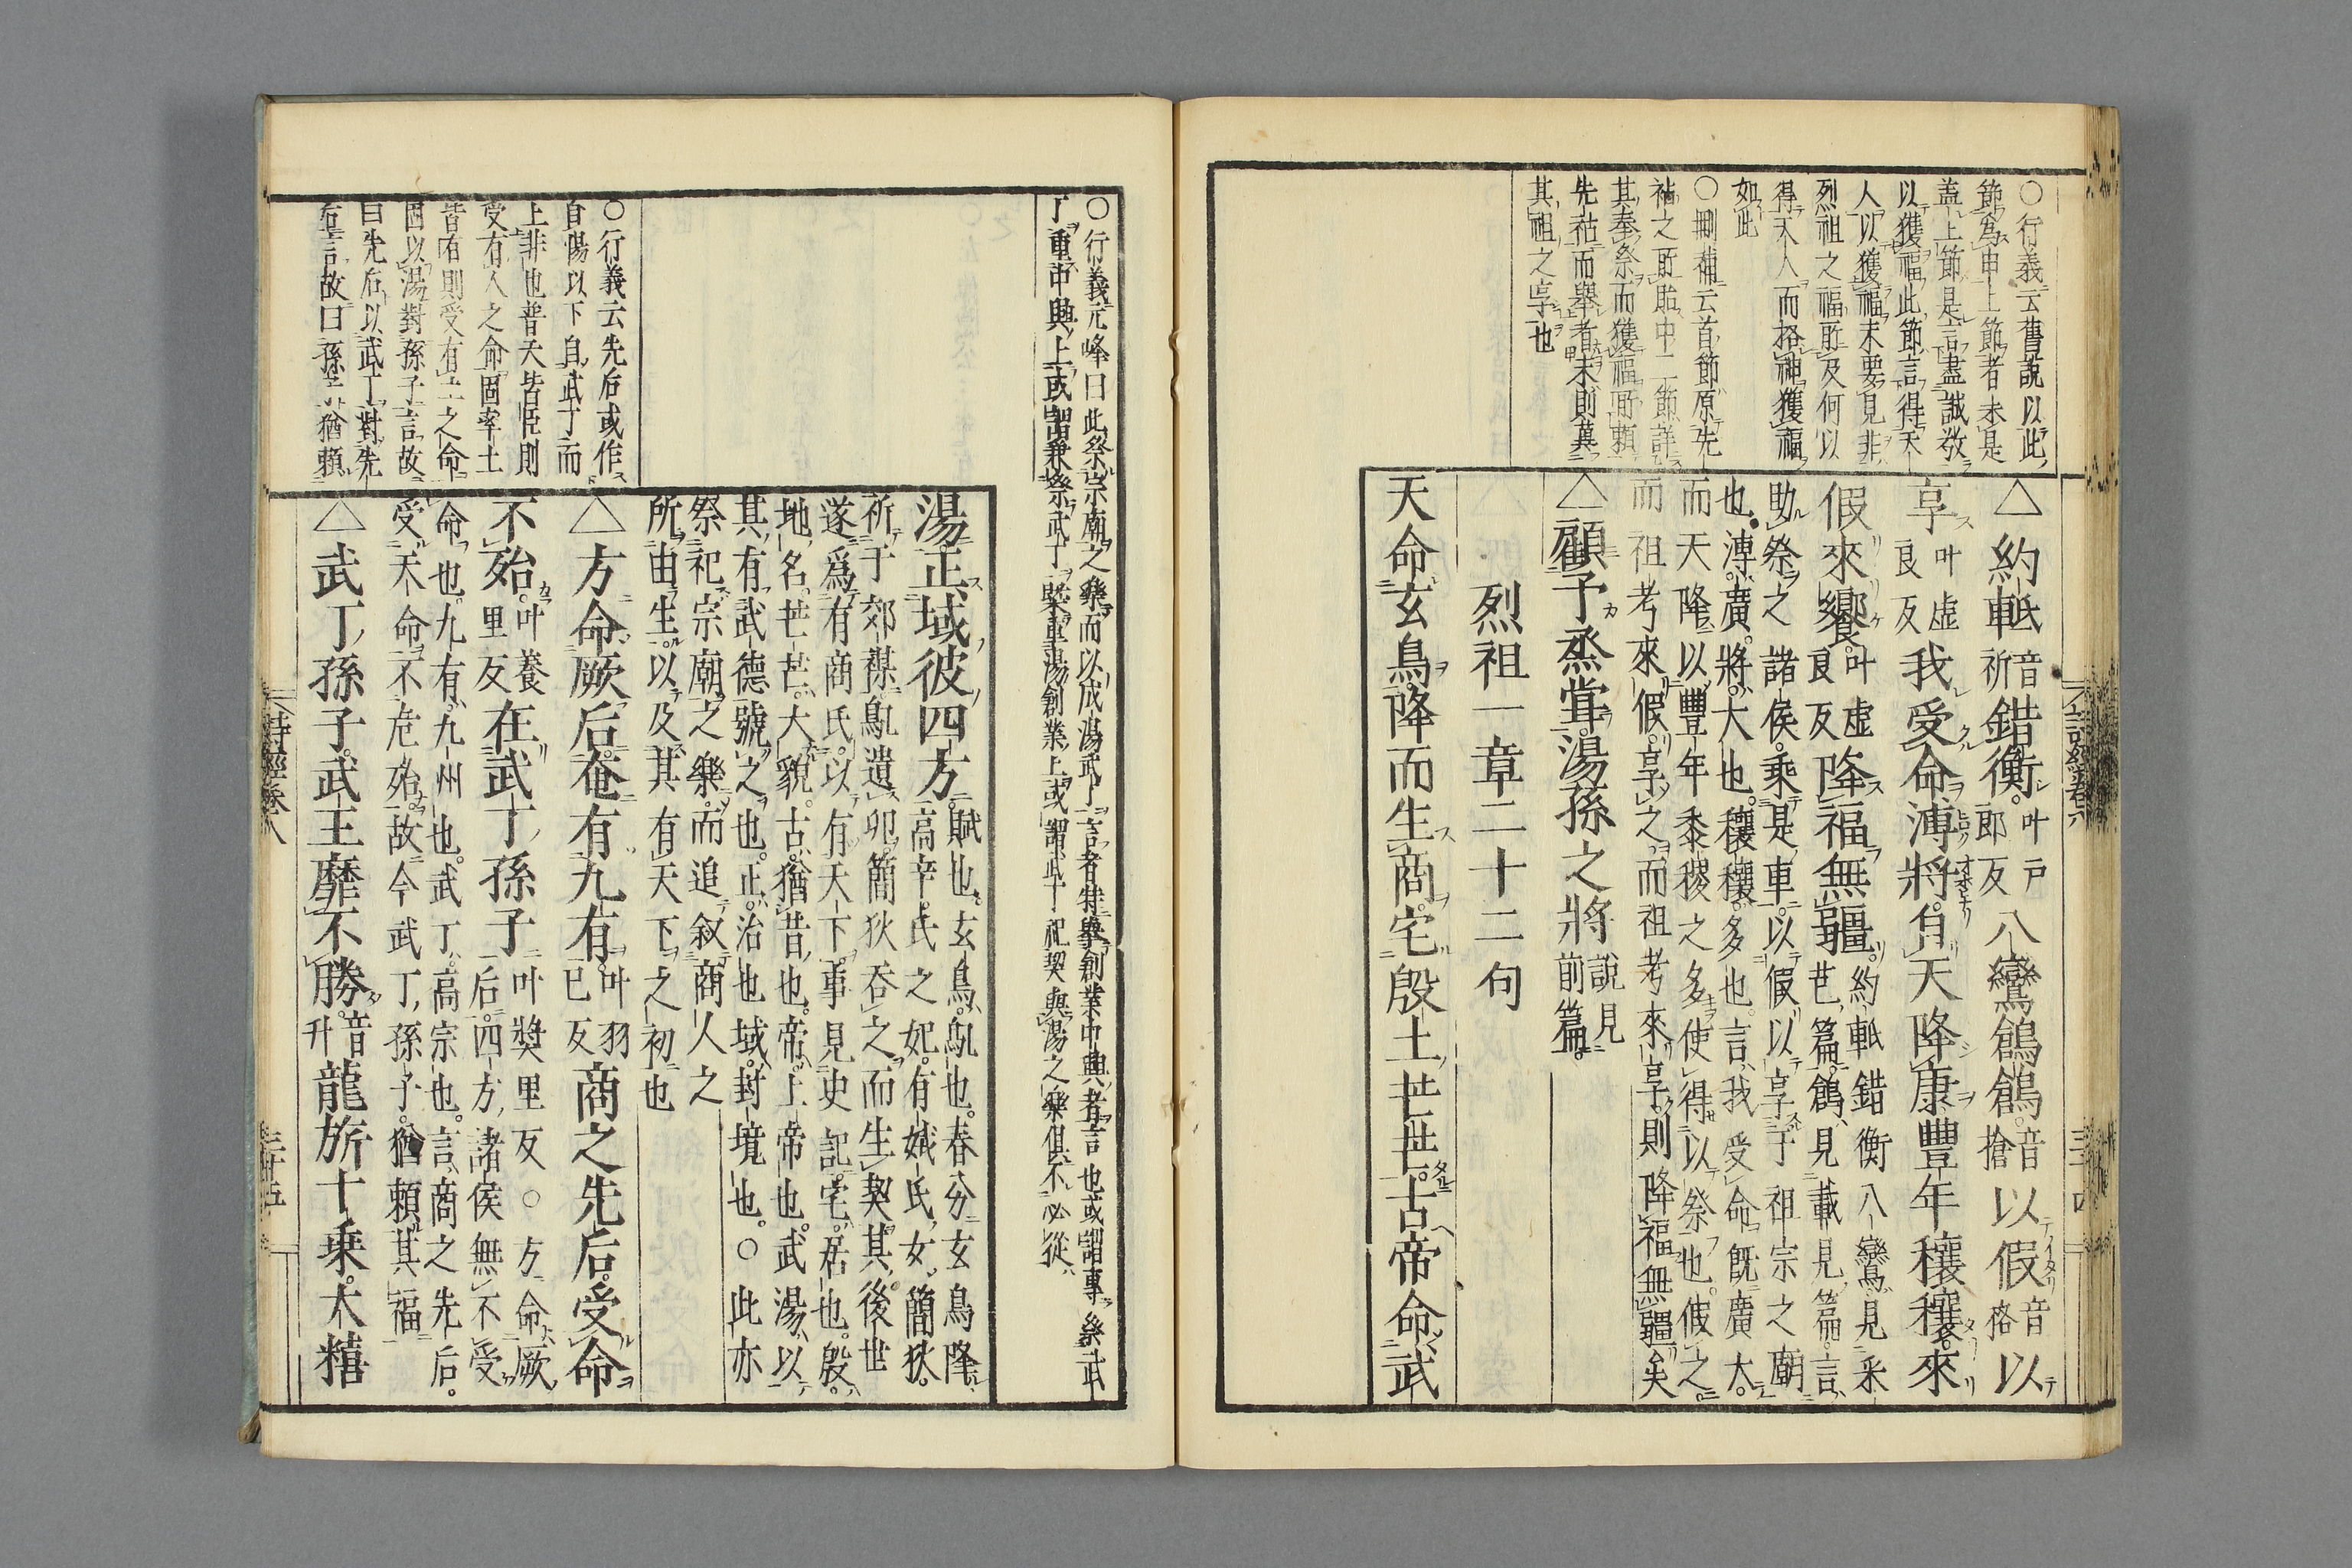 ○行義云舊說以此
節爲申上節者未是
蓋上節是言盡誠敬
以獲福此節言得天
人以獲福末要見非
烈祖之福所及何以
得天人而格神獲福
如此
○刪補云首節原先
祖之所貽中二節詳
其奉祭而獲福所賴
先祜而舉者末則冀
其祖之享也
△約軝音祈錯衡叶戶郎反八鸞鶬鶬音搶以假音格以
享叶虛良反我受命溥將自天降康豐年穰穰來
假來饗叶虛良反降福無疆約軝錯衡八鸞見采芑篇鶬見載見篇言
助祭之諸侯乘是車以假以享于祖宗之廟
也溥廣將大也穰穰多也言我受命旣廣大
而天降以豐年黍稷之多使得以祭也假之
而祖考來假享之而祖考來享則降福無疆矣
△顧予烝嘗湯孫之將說見前篇
烈祖一章二十二句
天命玄鳥降而生商宅殷土芒芒古帝命武
○行義元峰曰此祭宗廟之樂而以成湯武丁言者特舉創業中興者言也或謂專祭武
丁重中興上或謂兼祭武丁槩重湯創業上或謂武丁祀契與湯之樂俱不必從
湯正域彼四方賦也玄鳥鳦也春分玄鳥降
高辛氏之妃有娀氏女簡狄
祈于郊禖鳦遺卵簡狄吞之而生契其後世
遂爲有商氏以有天下事見史記宅居也殷
地名芒芒大貌古猶昔也帝上帝也武湯以
其有武德號之也正治也域封境也○此亦
祭祀宗廟之樂而追叙商人之
所由生以及其有天下之初也
○行義云先后或作
自湯以下自武丁而
上非也普天皆臣則
受有人之命固率土
皆有則受有土之命
因以湯對孫子言故
曰先后以武丁對先
后言故曰孫子猶賴
△方命厥后奄有九有叶羽已反商之先后受命
不殆叶養里反在武丁孫子叶獎里反○方命厥
后四方諸侯無不受
命也九有九州也武丁高宗也言商之先后
受天命不危殆故今武丁孫子猶賴其福
△武丁孫子武王靡不勝音升龍旂十乘大糦
詩經卷八
三十五